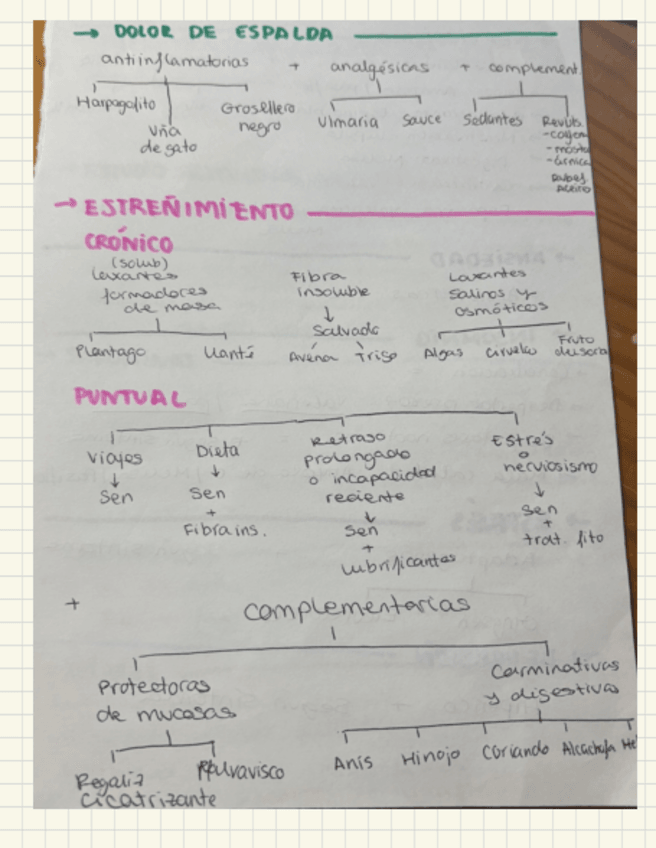 → DOLOR DE ESPALDA
antiinflamatorias + analgésicas + complement.
Harpagofito Uña de gato Grosellero negro Ulmaria Sauce Sedantes
→ ESTREÑIMIENTO
CRÓNICO
(solub)
laxantes formadores de masa
Fibra insoluble
↓
Salvado
Laxantes salinos y osmóticos
Plantago Llantén Avena Trigo Algas Ciruelo Fruto
PUNTUAL
Viajes
↓
Sen
Dieta
↓
Sen
+
Fibra ins.
Retraso
prolongado
o incapacidad
reciente
↓
Sen
+
lubrificantes
Estrés
o
nerviosismo
↓
Sen
+
trat. fito
+ complementarias
Protectoras
de mucosas
Carminativas
y digestivas
Regaliz Malvavisco
cicatrizante
Anís Hinojo Coriando Alcachofa